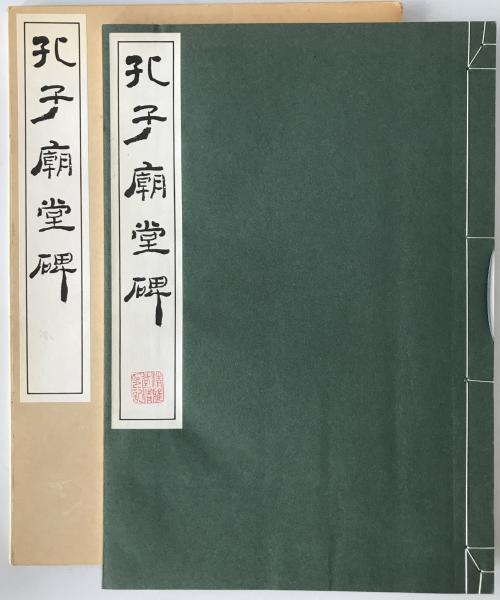 孔子廟堂碑
孔子廟堂碑